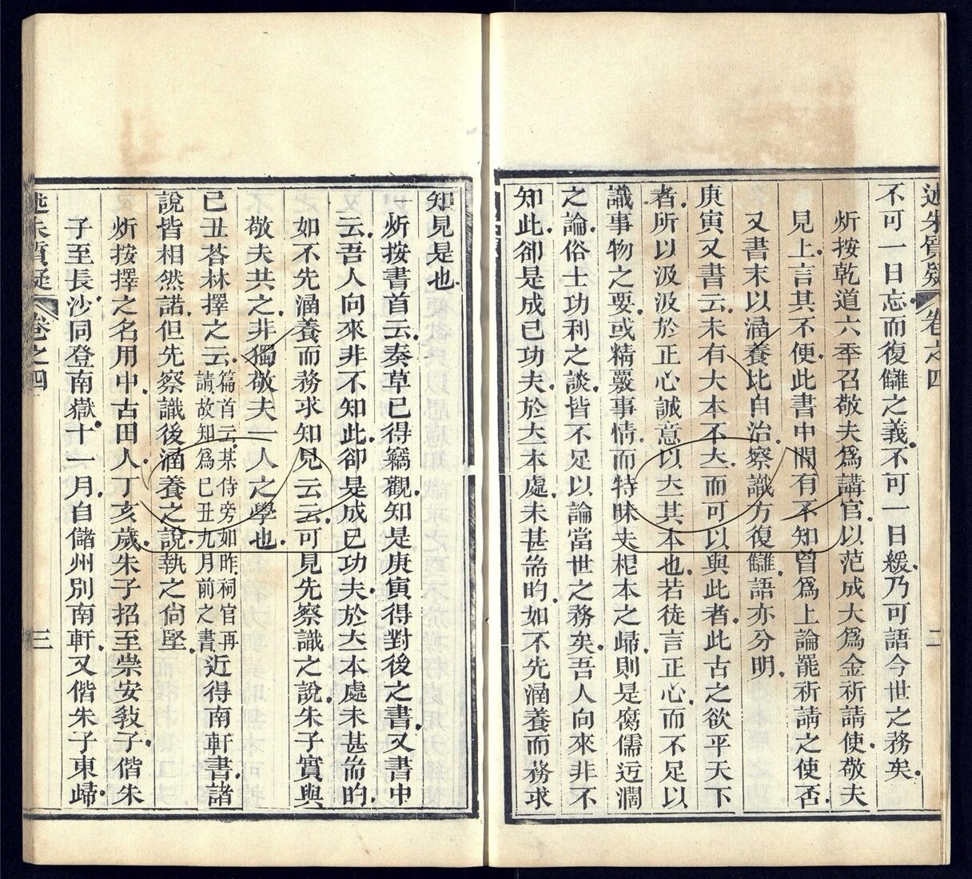 述朱質疑 卷之四 二
不可一日忘而復讎之義不可一日緩乃可語今世之務矣
炘按乾道六年召敬夫爲講官以范成大爲金祈請使敬夫
見上言其不便此書中閒有不知曾爲上論罷祈請之使否
又書末以涵養比自治察識方復讎語亦分明
庚寅又書云未有大本不立而可以與此者此古之欲平天下
者所以汲汲於正心誠意以立其本也若徒言正心而不足以
識事物之要或精覈事情而特昧夫根本之歸則是腐儒迂濶
之論俗士功利之談皆不足以論當世之務矣吾人向來非不
知此卻是成己功夫於立本處未甚端的如不先涵養而務求
知見是也
炘按書首云奏草已得竊觀知是庚寅得對後之書又書中
云吾人向來非不知此卻是成己功夫於立本處未甚端的
如不先涵養而務求知見云云可見先察識之說朱子實與
敬夫共之非獨敬夫一人之學也
己丑荅林擇之云篇首云某侍旁如昨祠官再請故知爲己丑九月前之書近得南軒書諸
說皆相然諾但先察識後涵養之說執之尙堅
炘按擇之名用中古田人丁亥歲朱子招至崇安敎子偕朱
子至長沙同登南嶽十一月自儲州別南軒又偕朱子東歸
述朱質疑 卷之四 三